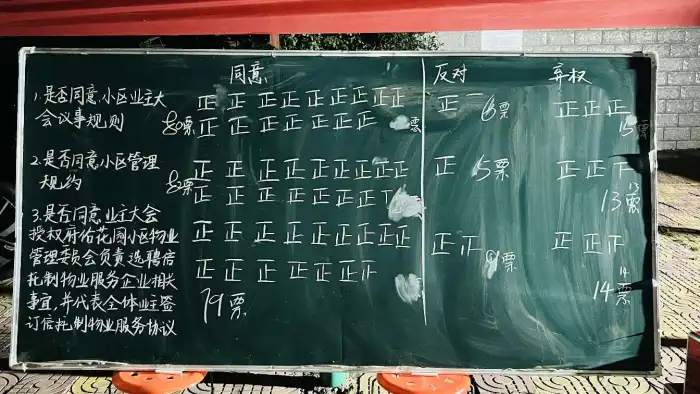 同意 反对 弃权
1.是否同意小区业主大
会议事规则
正正正正正正正正正
80票 正正正正正正正 票
正一 6票
正正正
15票
2.是否同意小区管理
规约
正正正正正正正正正
82票 正正正正正正正T
正 5票
正正下
13
13票
3.是否同意业主大会
授权府给花园小区物业
管理委员会负责选聘信
托制物业服务企业相关
事宜,并代表全体业主签
订信托制物业服务协议
正正正正正正正正正
正正正正正正正
79票
正正 9票
正正下
14
14票